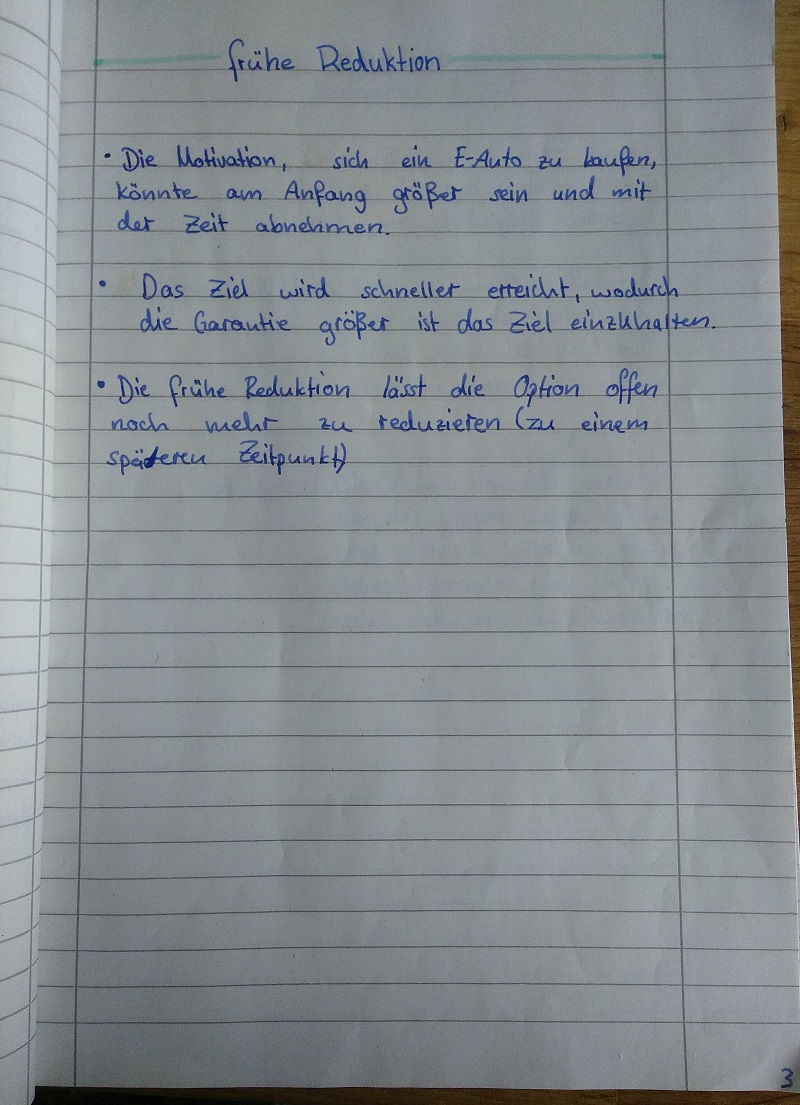 frühe Reduktion
• Die Motivation, sich ein E-Auto zu kaufen,
könnte am Anfang größer sein und mit
der Zeit abnehmen.
• Das Ziel wird schneller erreicht, wodurch
die Garantie größer ist das Ziel einzuhalten.
• Die frühe Reduktion lässt die Option offen
noch mehr zu reduzieren (zu einem
späteren Zeitpunkt)
3